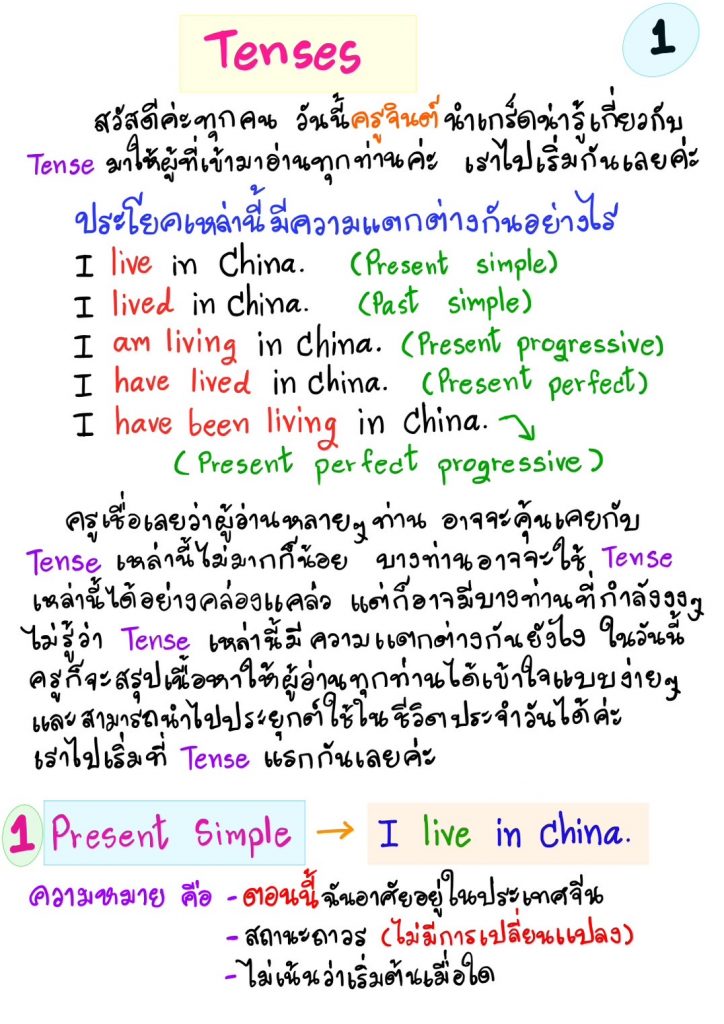 Tenses
1
สวัสดีค่ะทุกคน วันนี้ครูจินต์นำเกร็ดน่ารู้เกี่ยวกับ
Tense มาให้ผู้ที่เข้ามาอ่านทุกท่านค่ะ เราไปเริ่มกันเลยค่ะ
ประโยคเหล่านี้มีความแตกต่างกันอย่างไร
I live in China. (Present simple)
I lived in China. (Past simple)
I am living in China. (Present progressive)
I have lived in China. (Present perfect)
I have been living in China.
(Present perfect progressive)
ครูเชื่อเลยว่าผู้อ่านหลายๆท่าน อาจจะคุ้นเคยกับ
Tense เหล่านี้ไม่มากก็น้อย บางท่านอาจจะใช้ Tense
เหล่านี้ได้อย่างคล่องแคล่ว แต่ก็อาจมีบางท่านที่กำลังงงๆ
ไม่รู้ว่า Tense เหล่านี้มีความแตกต่างกันยังไง ในวันนี้
ครูก็จะสรุปเนื้อหาให้ผู้อ่านทุกท่านได้เข้าใจแบบง่ายๆ
และสามารถนำไปประยุกต์ใช้ในชีวิตประจำวันได้ค่ะ
เราไปเริ่มที่ Tense แรกกันเลยค่ะ
1 Present Simple → I live in China.
ความหมาย คือ - ตอนนี้ฉันอาศัยอยู่ในประเทศจีน
- สถานะถาวร (ไม่มีการเปลี่ยนแปลง)
- ไม่เน้นว่าเริ่มต้นเมื่อใด